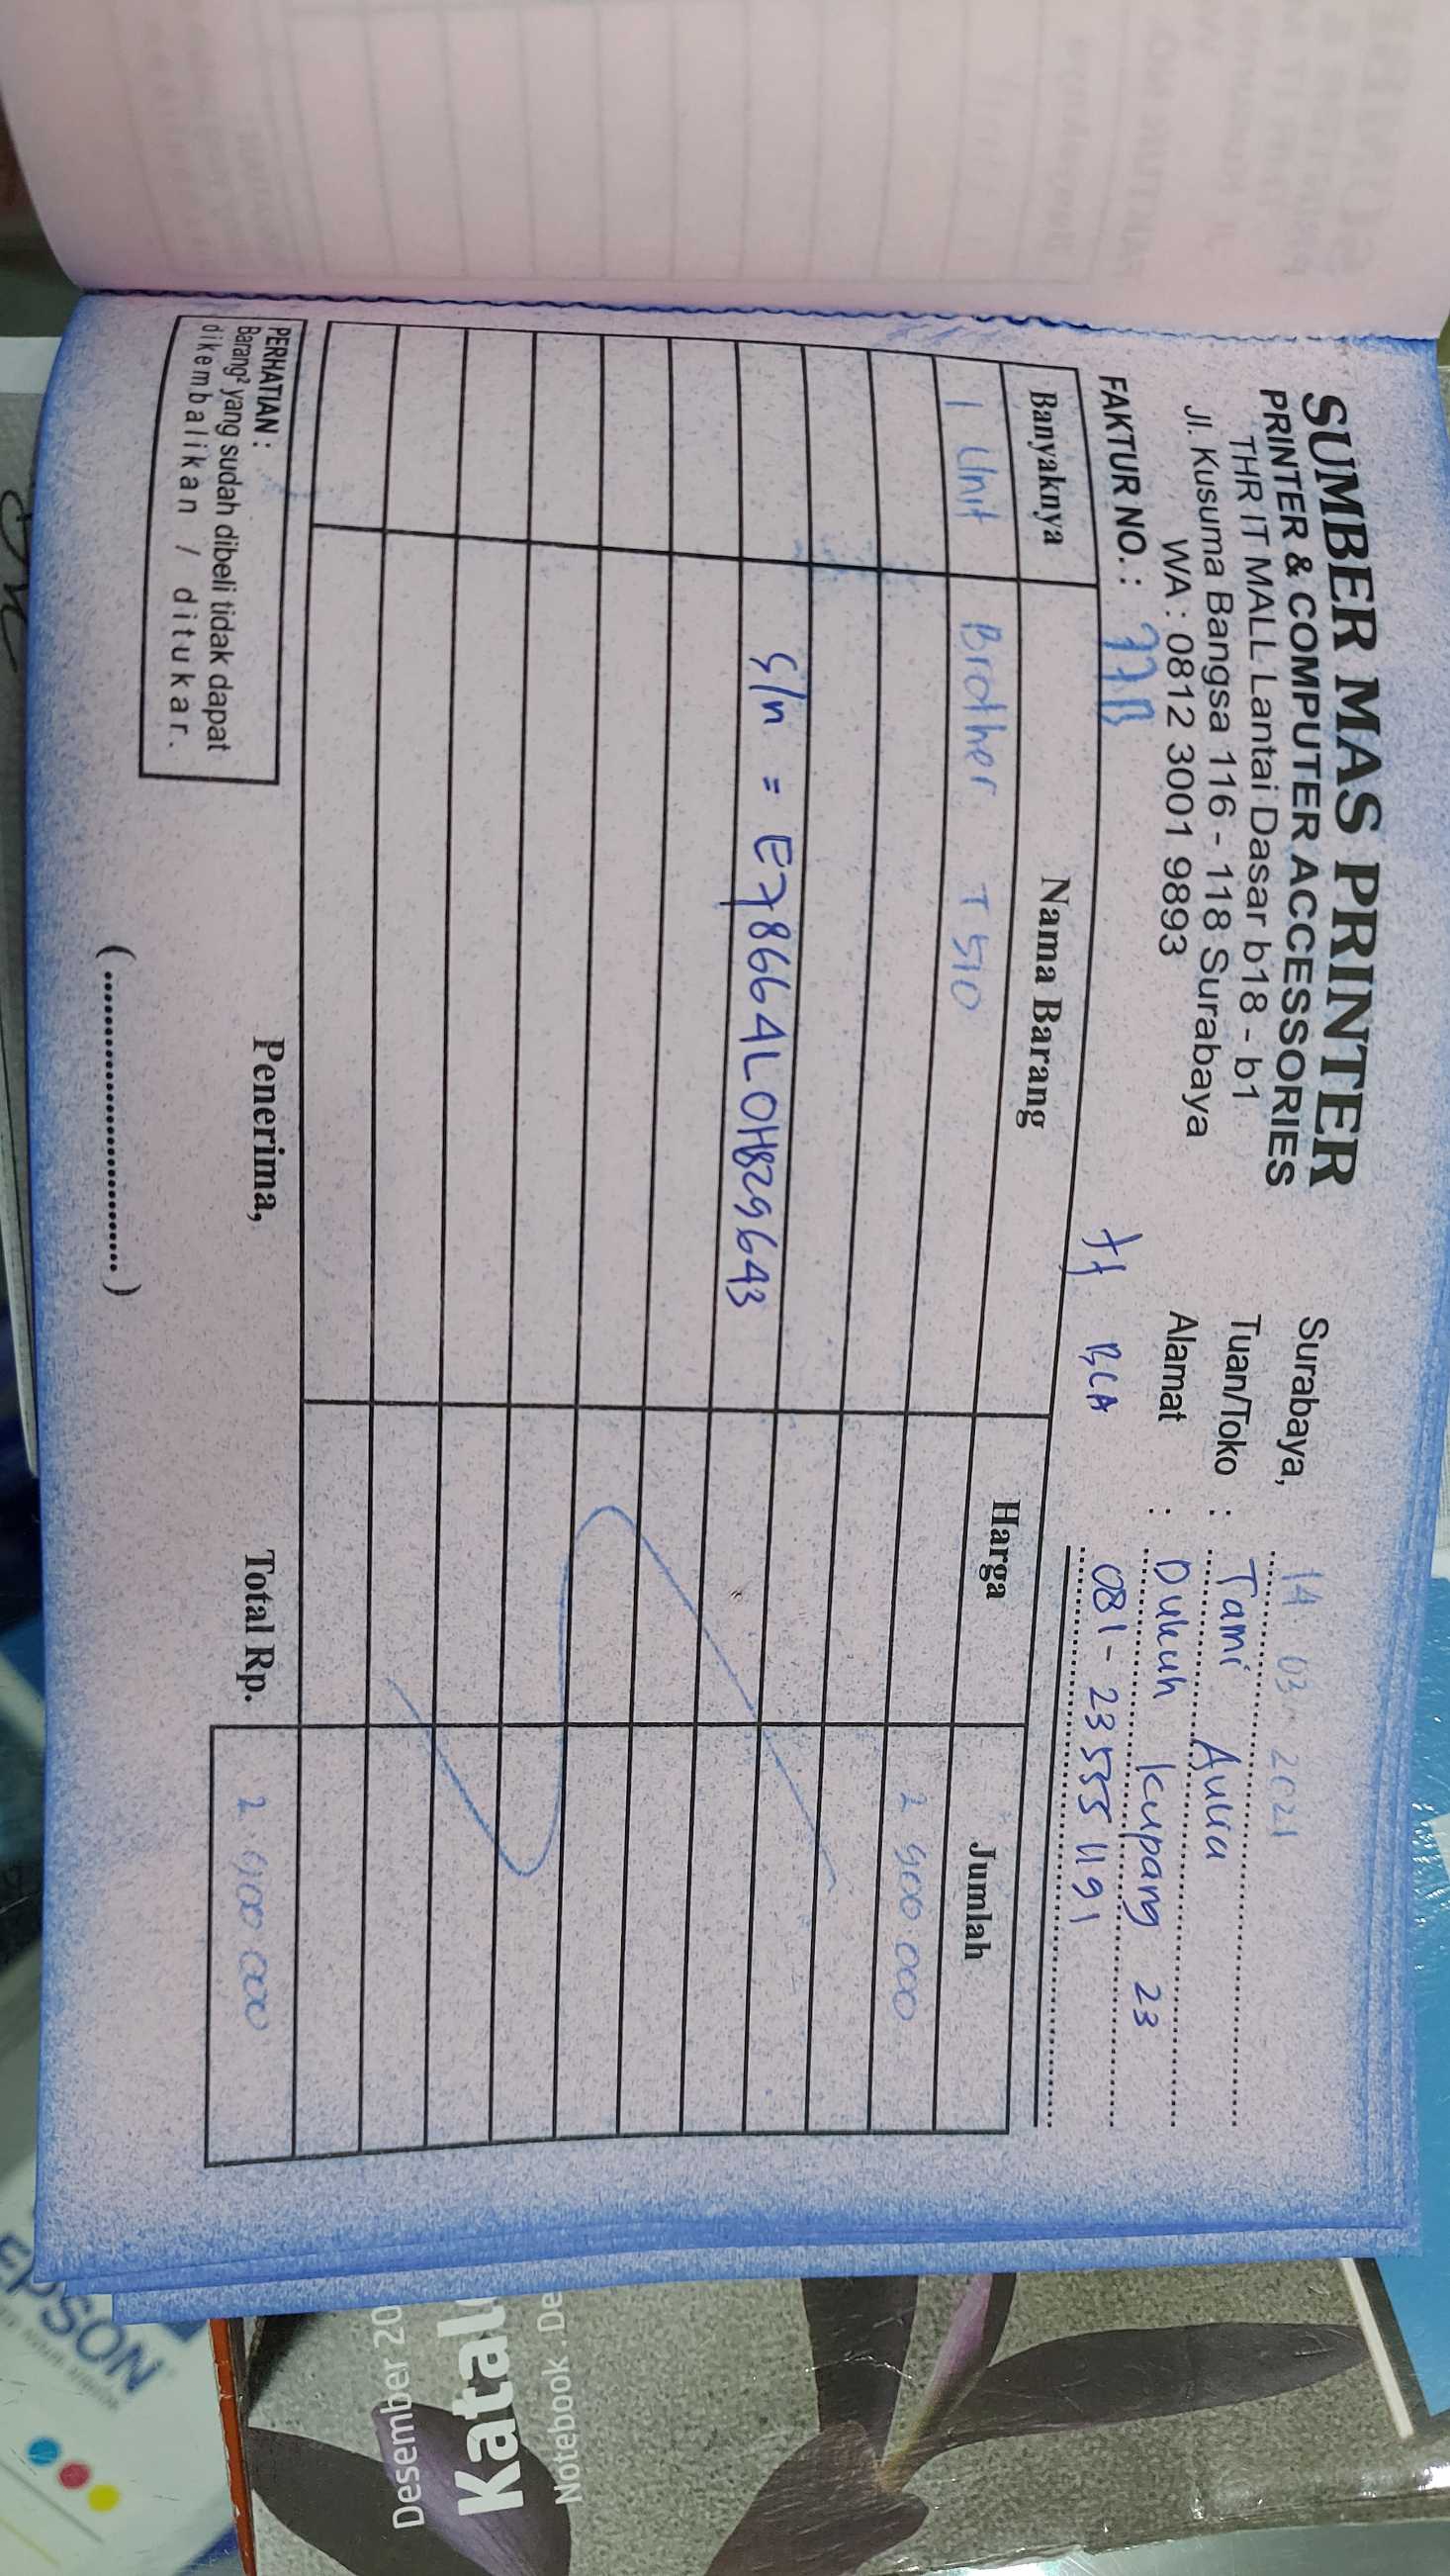 SUMBER MAS PRINTER
PRINTER & COMPUTER ACCESSORIES
THR IT MALL Lantai Dasar b18 - b1
Jl. Kusuma Bangsa 116 - 118 Surabaya
WA : 0812 3001 9893
FAKTUR NO. :
Surabaya, 14 03 - 2021
Tuan/Toko : Tami Aulia
Alamat : Dukuh Kupang 23
081 - 23555 1191
BCA
Banyaknya Nama Barang Harga Jumlah
1 Unit Brother T510 2 900 000
S/n = E78664L0H829643
PERHATIAN :
Barang² yang sudah dibeli tidak dapat
dikembalikan / ditukar.
Penerima,
(........................)
Total Rp. 2 900 000
EPSON
Desember 20
Katal
Notebook . De